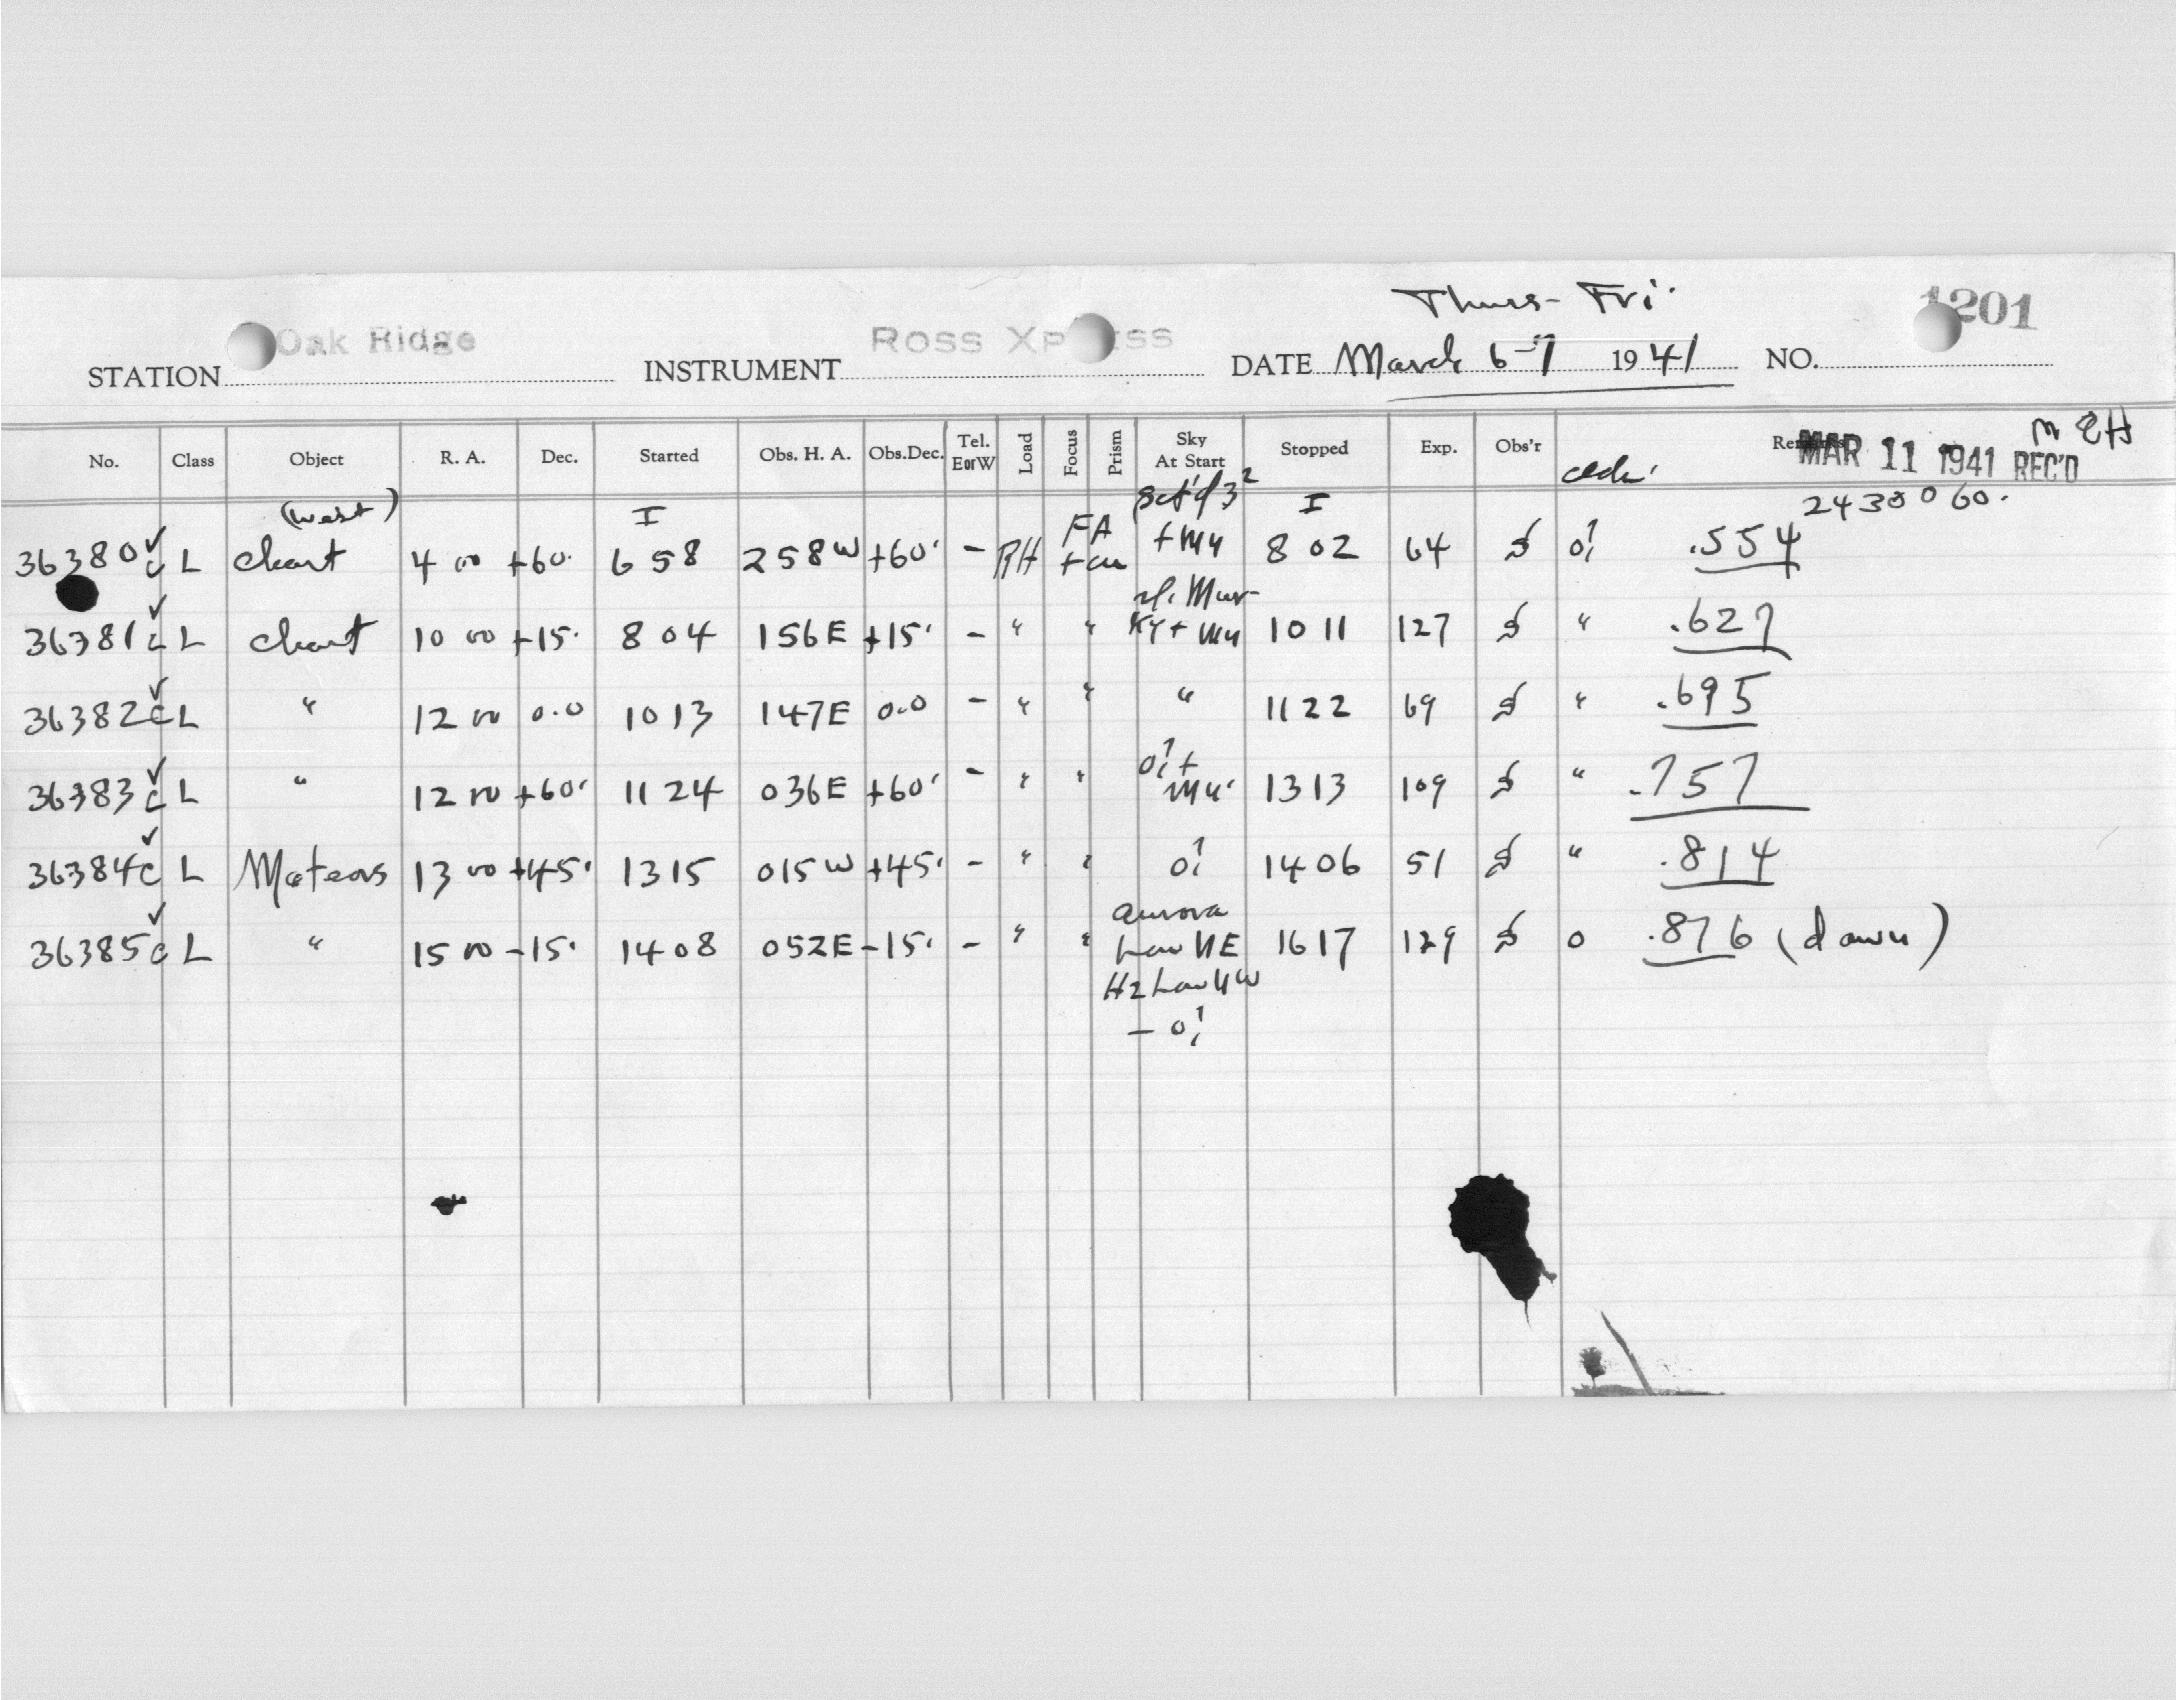 Thurs - Fri.
STATION Oak Ridge INSTRUMENT Ross Xp ss DATE March 6-7 1941 NO. 1201
No. Class Object R. A. Dec. Started Obs. H. A. Obs.Dec. Tel. EorW Load Focus Prism Sky At Start Stopped Exp. Obs'r MAR 11 1941 REC'D
(west) I I 2430060.
36380c L chart 4 00 +60. 6 58 258W +60. - RH FA 8 02 64 .554
36381c L chart 10 00 +15. 8 04 156E +15. - " " 10 11 127 " .627
36382c L " 12 00 0.0 10 13 147E 0.0 - " " " 11 22 69 " .695
36383c L " 12 00 +60. 11 24 036E +60. - " " 13 13 109 " .757
36384c L Meteors 13 00 +45. 13 15 015W +45. - " " 14 06 51 " .814
36385c L " 15 00 -15. 14 08 052E -15. - " " aurora Low NE Hz Low NW 16 17 129 0 .876 (dawn)